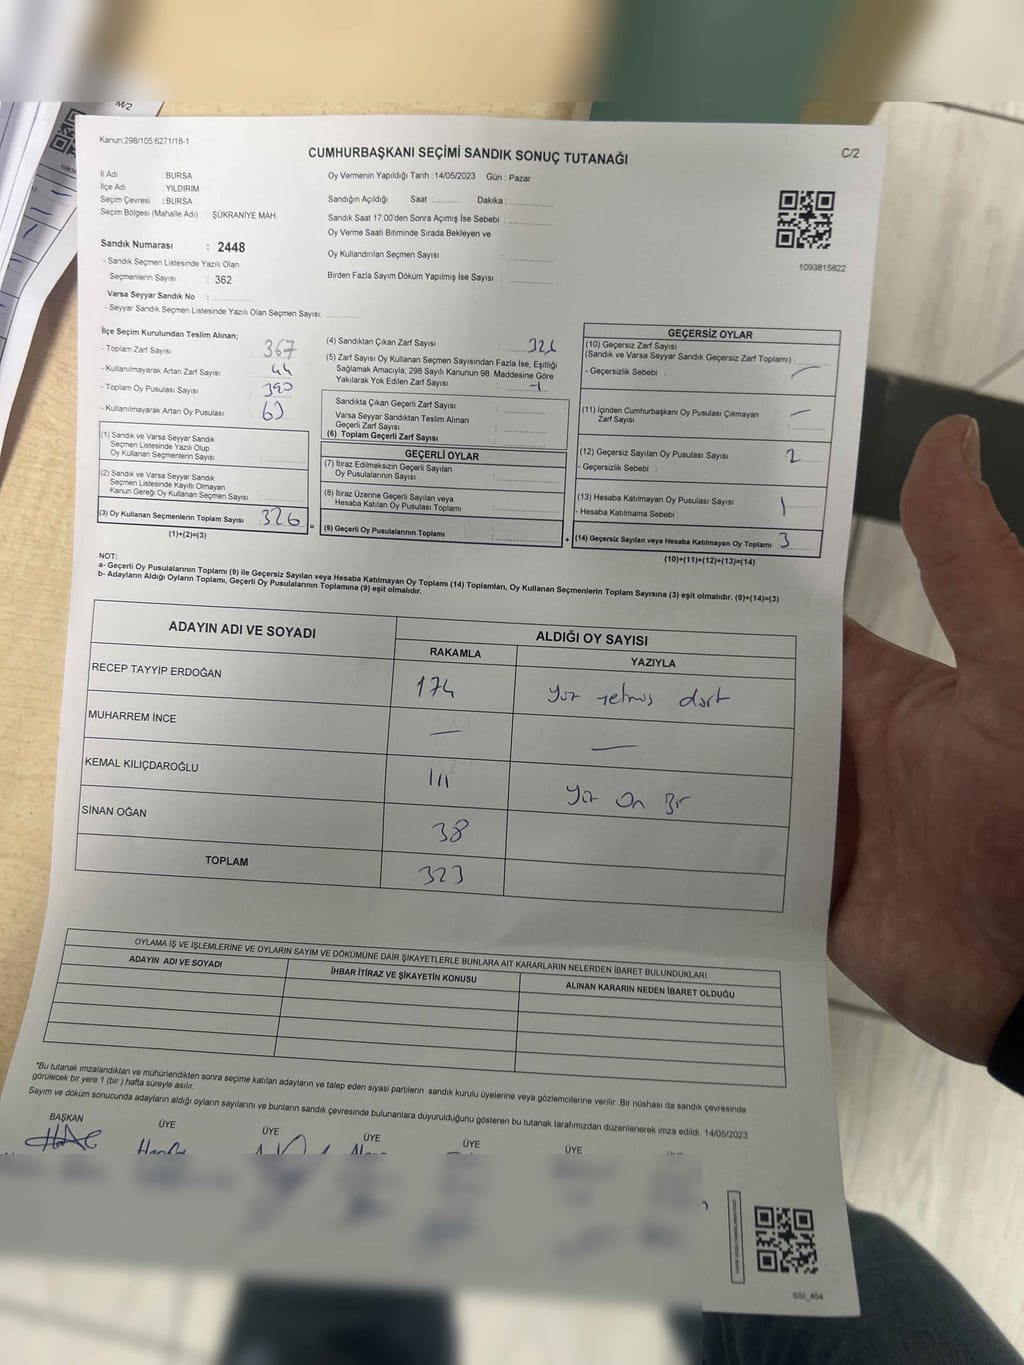 M/2
Kanun:298/105,6271/18-1
CUMHURBAŞKANI SEÇİMİ SANDIK SONUÇ TUTANAĞI
C/2
İl Adı : BURSA
İlçe Adı : YILDIRIM
Seçim Çevresi : BURSA
Seçim Bölgesi (Mahalle Adı) : ŞÜKRANİYE MAH.
Oy Vermenin Yapıldığı Tarih : 14/05/2023 Gün : Pazar
Sandığın Açıldığı Saat : Dakika :
Sandık Saat 17:00'den Sonra Açımış İse Sebebi :
Oy Verme Saati Bitiminde Sırada Bekleyen ve
Oy Kullandırılan Seçmen Sayısı :
Birden Fazla Sayım Döküm Yapılmış İse Sayısı :
1093815822
Sandık Numarası : 2448
- Sandık Seçmen Listesinde Yazılı Olan
Seçmenlerin Sayısı : 362
Varsa Seyyar Sandık No :
- Seyyar Sandık Seçmen Listesinde Yazılı Olan Seçmen Sayısı:
İlçe Seçim Kurulundan Teslim Alınan:
- Toplam Zarf Sayısı : 367
- Kullanılmayarak Artan Zarf Sayısı : 44
- Toplam Oy Pusulası Sayısı : 390
- Kullanılmayarak Artan Oy Pusulası :
(1) Sandık ve Varsa Seyyar Sandık
Seçmen Listesinde Yazılı Olup
Oy Kullanan Seçmenlerin Sayısı :
(2) Sandık ve Varsa Seyyar Sandık
Seçmen Listesinde Kayıtlı Olmayan
Kanun Gereği Oy Kullanan Seçmen Sayısı :
(3) Oy Kullanan Seçmenlerin Toplam Sayısı : 326
(1)+(2)=(3)
=
(4) Sandıktan Çıkan Zarf Sayısı : 326
(5) Zarf Sayısı Oy Kullanan Seçmen Sayısından Fazla İse, Eşitliği
Sağlamak Amacıyla, 298 Sayılı Kanunun 98. Maddesine Göre
Yakılarak Yok Edilen Zarf Sayısı :
Sandıkta Çıkan Geçerli Zarf Sayısı :
Varsa Seyyar Sandıktan Teslim Alınan
Geçerli Zarf Sayısı :
(6) Toplam Geçerli Zarf Sayısı :
GEÇERLİ OYLAR
(7) İtiraz Edilmeksizin Geçerli Sayılan
Oy Pusulasının Sayısı :
(8) İtiraz Üzerine Geçerli Sayılan veya
Hesaba Katılan Oy Pusulası Toplamı :
(9) Geçerli Oy Pusulalarının Toplamı :
+
GEÇERSİZ OYLAR
(10) Geçersiz Zarf Sayısı
(Sandık ve Varsa Seyyar Sandık Geçersiz Zarf Toplamı) :
- Geçersizlik Sebebi :
(11) İçinden Cumhurbaşkanı Oy Pusulası Çıkmayan
Zarf Sayısı :
(12) Geçersiz Sayılan Oy Pusulası Sayısı : 2
- Geçersizlik Sebebi :
(13) Hesaba Katılmayan Oy Pusulası Sayısı : 1
- Hesaba Katılmama Sebebi :
(14) Geçersiz Sayılan veya Hesaba Katılmayan Oy Toplamı : 3
(10)+(11)+(12)+(13)=(14)
NOT:
a- Geçerli Oy Pusulalarının Toplamı (9) ile Geçersiz Sayılan veya Hesaba Katılmayan Oy Toplamı (14) Toplamları, Oy Kullanan Seçmenlerin Toplam Sayısına (3) eşit olmalıdır. (9)+(14)=(3)
b- Adayların Aldığı Oyların Toplamı, Geçerli Oy Pusulalarının Toplamına (9) eşit olmalıdır.
ADAYIN ADI VE SOYADI
ALDIĞI OY SAYISI
RAKAMLA YAZIYLA
RECEP TAYYİP ERDOĞAN 174 yüz yetmiş dört
MUHARREM İNCE —  —
KEMAL KILIÇDAROĞLU 111 yüz on bir
SİNAN OĞAN 38
TOPLAM 323
OYLAMA İŞ VE İŞLEMLERİNE VE OYLARIN SAYIM VE DÖKÜMÜNE DAİR ŞİKAYETLERLE BUNLARA AİT KARARLARIN NELERDEN İBARET BULUNDUKLARI
ADAYIN ADI VE SOYADI İHBAR İTİRAZ VE ŞİKAYETİN KONUSU ALINAN KARARIN NEDEN İBARET OLDUĞU
*Bu tutanak imzalandıktan ve mühürlendikten sonra seçime katılan adayların ve talep eden siyasi partilerin sandık kurulu üyelerine veya gözlemcilerine verilir .Bir nüshası da sandık çevresinde
görülecek bir yere 1 (bir ) hafta süreyle asılır.
Sayım ve döküm sonucunda adayların aldığı oyların sayılarını ve bunların sandık çevresinde bulunanlara duyurulduğunu gösteren bu tutanak tarafımızdan düzenlenerek imza edildi. 14/05/2023
BAŞKAN ÜYE ÜYE ÜYE ÜYE ÜYE